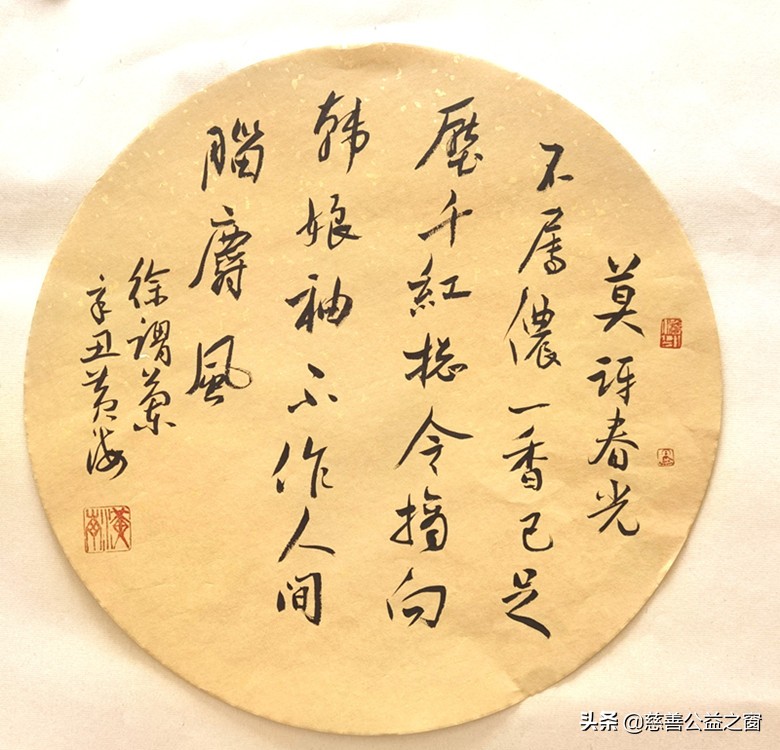 莫訝春光
不属儂一香已足
壓千紅總令摘向
韩娘袖不作人间
腦麝風
徐渭蘭
辛丑黄海
头条 @慈善公益之窗